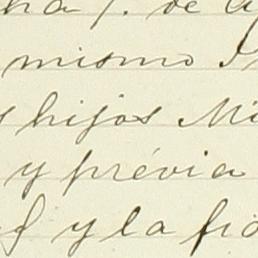 ha f. de
mismo
hijos Mi
y prévia
f y la fi